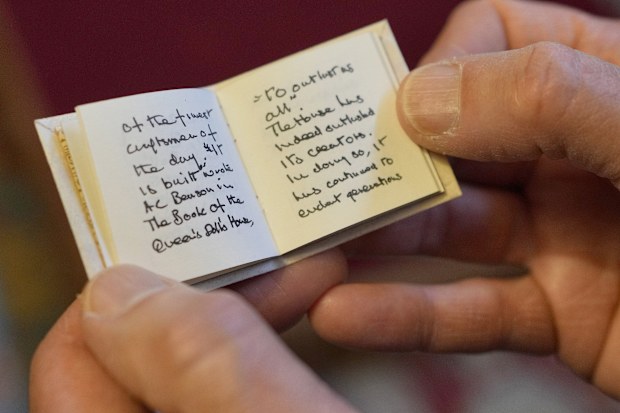 of the finest
craftsmen of
the day. "It
is built", wrote
AC Benson in
The Book of the
Queen's Dolls House,
"to outlast us
all".
The House has
indeed outlasted
its creators.
In doing so, it
has continued to
enchant generations